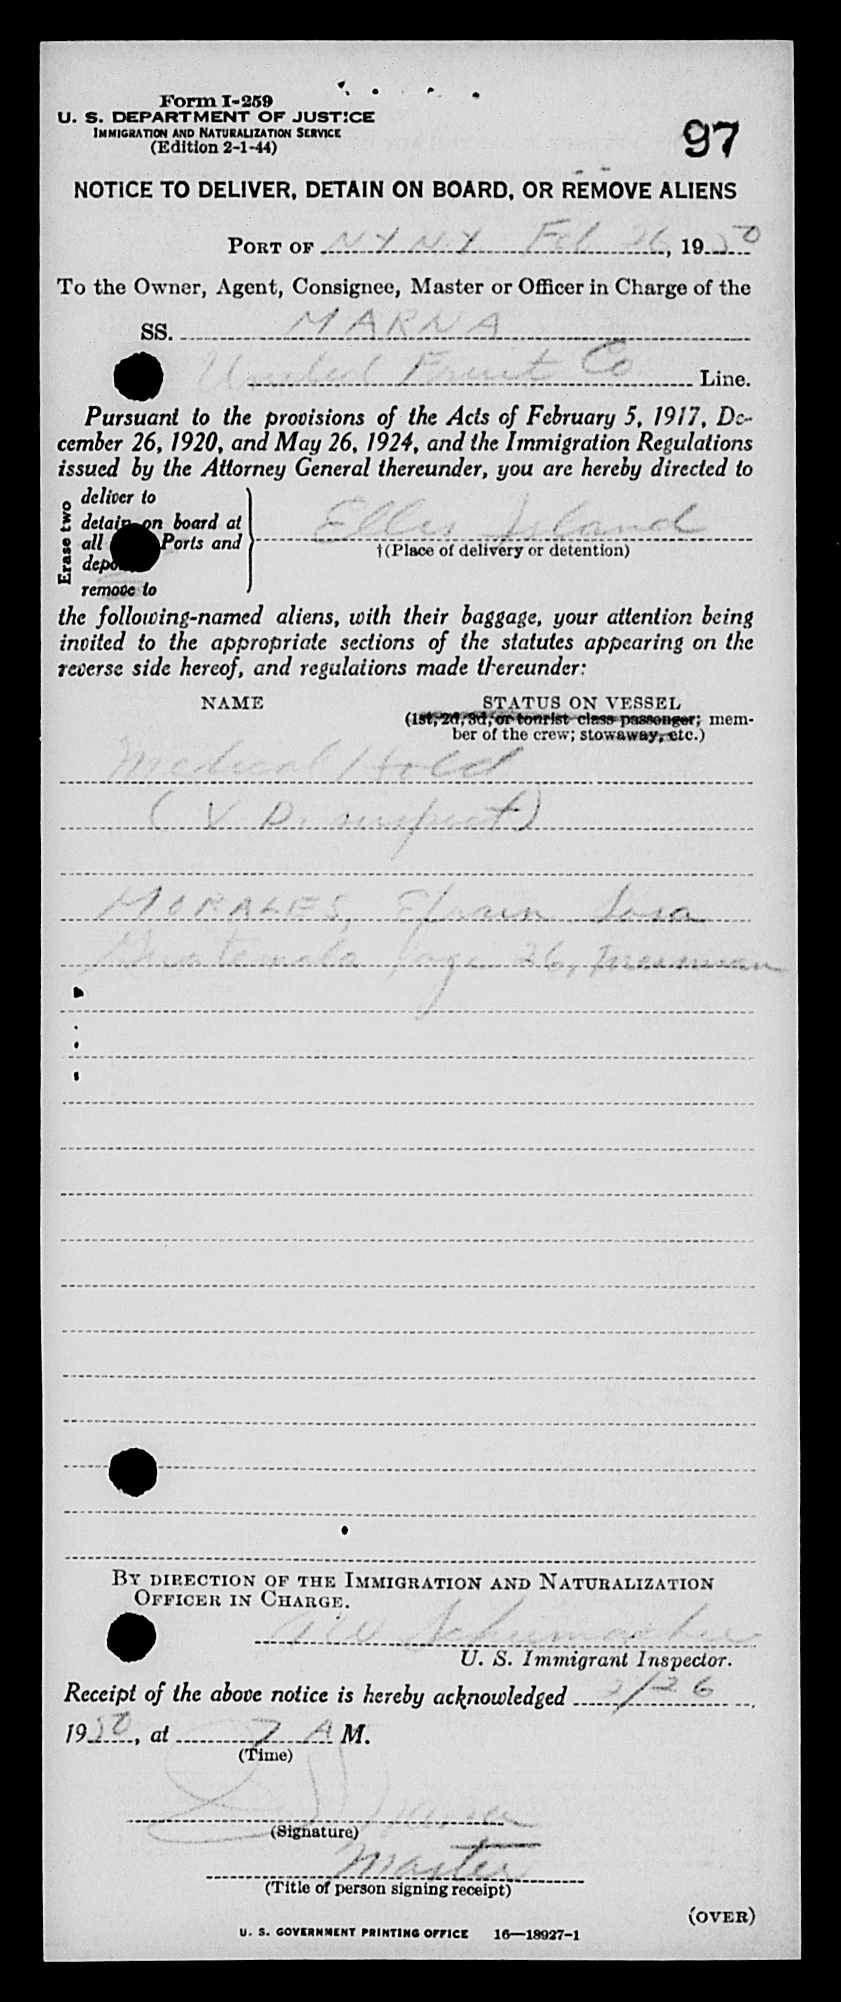 Form I-259
U. S. DEPARTMENT OF JUSTICE
IMMIGRATION AND NATURALIZATION SERVICE
(Edition 2-1-44)
97
NOTICE TO DELIVER, DETAIN ON BOARD, OR REMOVE ALIENS
PORT OF N Y N.Y. Feb 26, 1950
To the Owner, Agent, Consignee, Master or Officer in Charge of the
SS. MARNA
United Fruit Co Line.
Pursuant to the provisions of the Acts of February 5, 1917, De-
cember 26, 1920, and May 26, 1924, and the Immigration Regulations
issued by the Attorney General thereunder, you are hereby directed to
Erase two
deliver to
detain on board at
all Ports and
remove to
Ellis Island
†(Place of delivery or detention)
the following-named aliens, with their baggage, your attention being
invited to the appropriate sections of the statutes appearing on the
reverse side hereof, and regulations made thereunder:
NAME STATUS ON VESSEL
(1st, 2d, 3d, or tourist class passenger; mem-
ber of the crew; stowaway, etc.)
Medical Hold
(V D. suspect)
MORALES, Efrain Sosa
Guatemala age 26, Messman
BY DIRECTION OF THE IMMIGRATION AND NATURALIZATION
OFFICER IN CHARGE.
Schumacher
U. S. Immigrant Inspector.
Receipt of the above notice is hereby acknowledged 2/26
1950, at 7 A M.
(Time)
(Signature)
Master
(Title of person signing receipt)
(OVER)
U. S. GOVERNMENT PRINTING OFFICE 16—18927-1